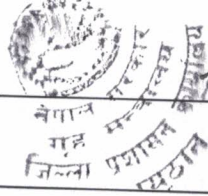 नेपाल सरकार
गृह मन्त्रालय
जिल्ला प्रशासन
प्यूठान